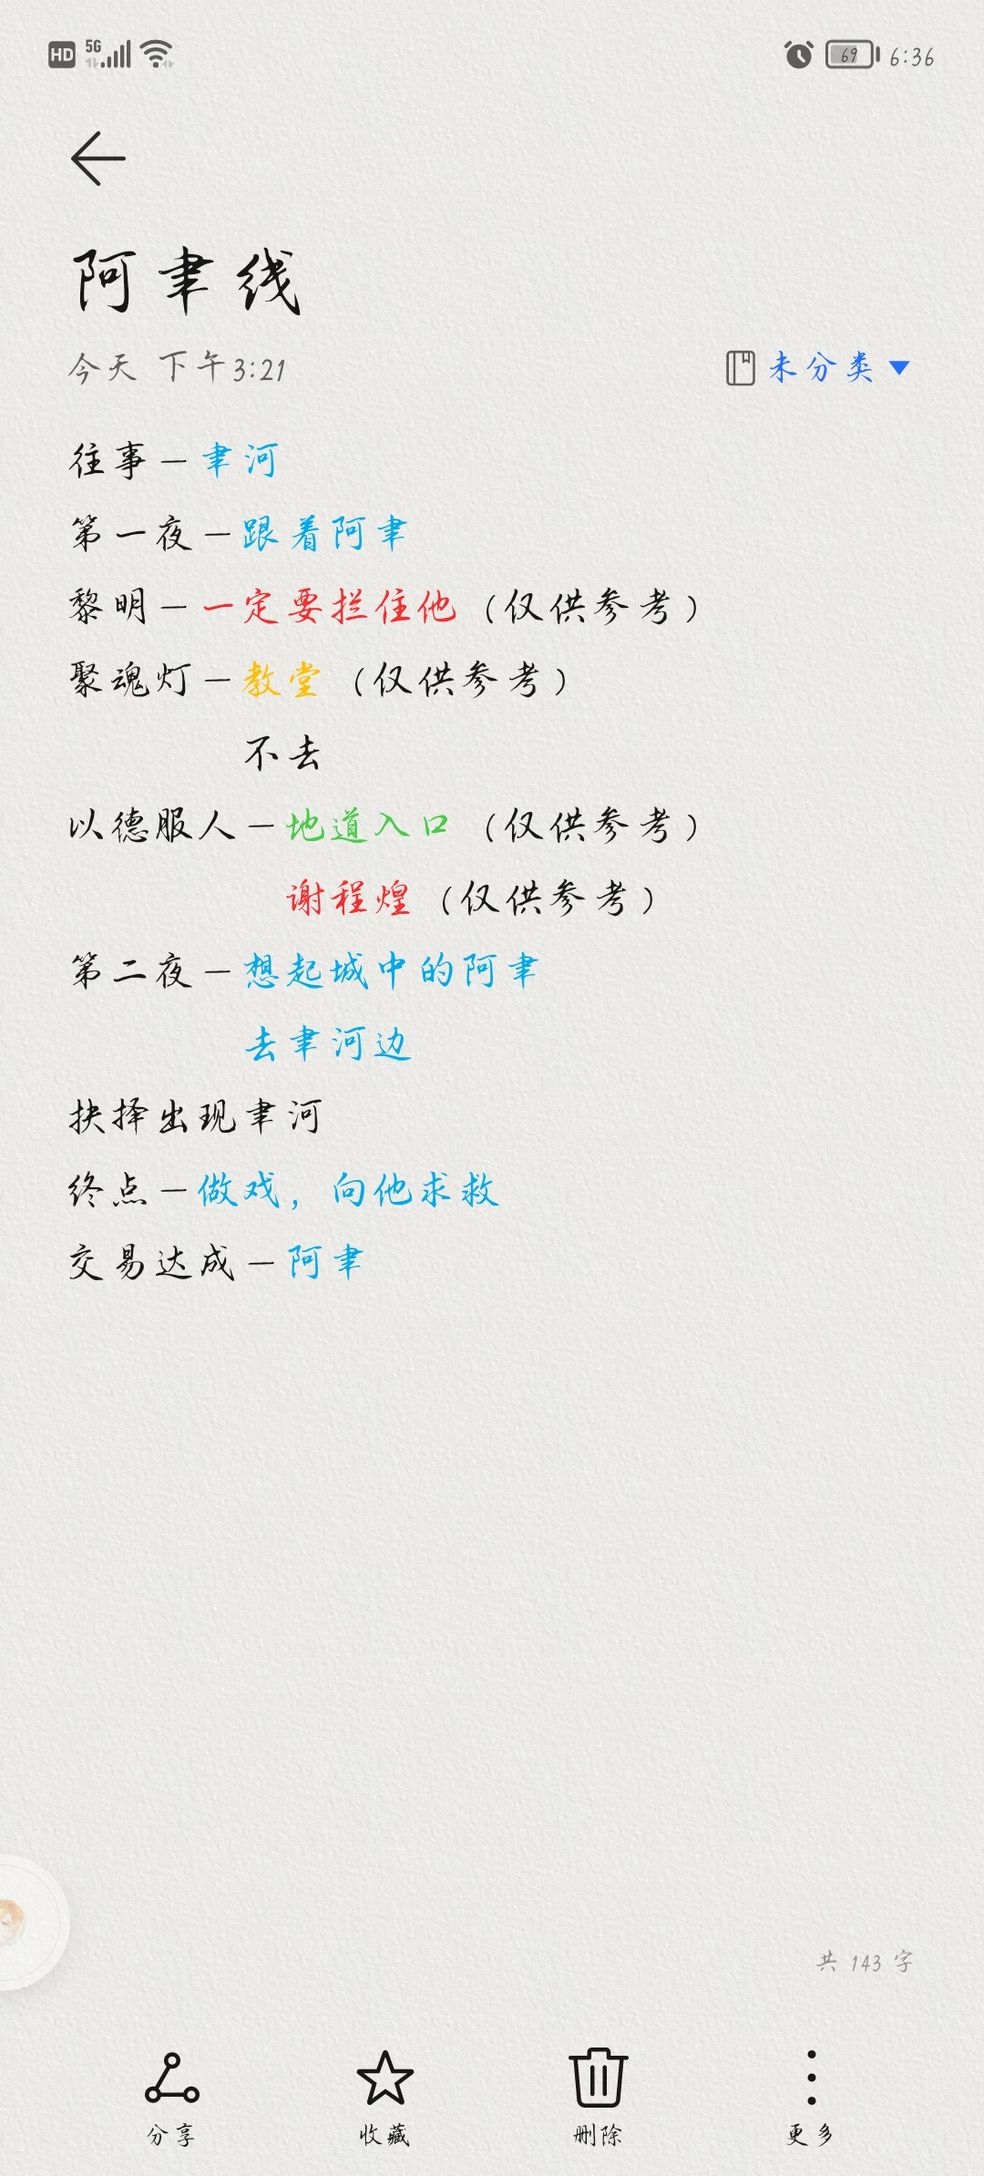 HD 5G 69 6:36
阿聿线
今天 下午3:21 未分类
往事－聿河
第一夜－跟着阿聿
黎明－一定要拦住他（仅供参考）
聚魂灯－教堂（仅供参考）
不去
以德服人－地道入口（仅供参考）
谢程煌（仅供参考）
第二夜－想起城中的阿聿
去聿河边
抉择出现聿河
终点－做戏，向他求救
交易达成－阿聿
共 143 字
分享 收藏 删除 更多